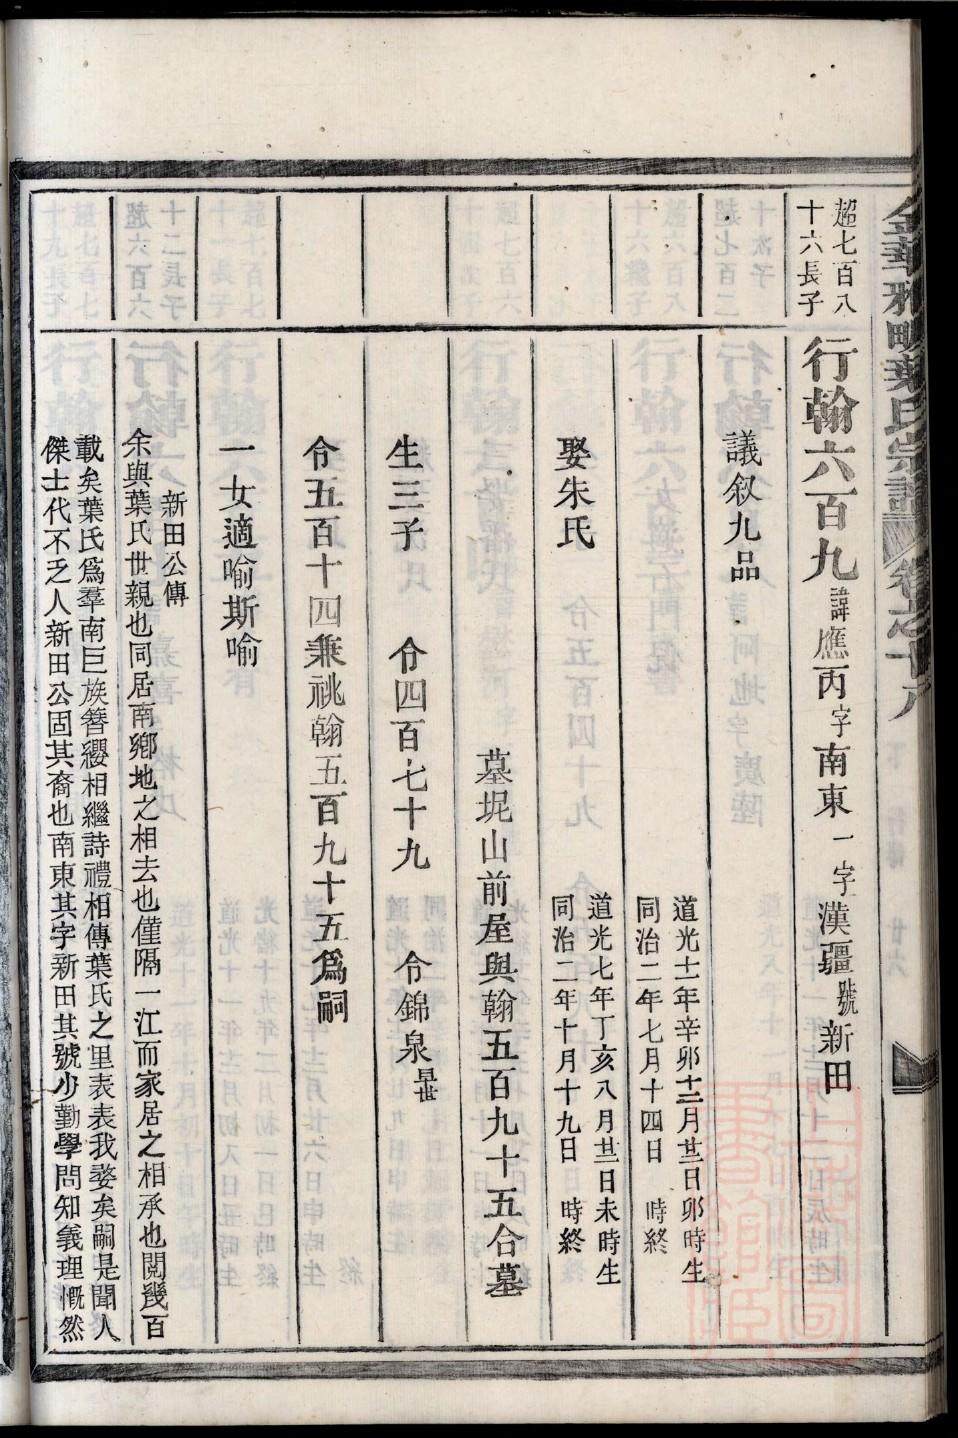 金華雅畈葉氏宗譜 卷之十八
超七百八
十六長子
行翰六百九 諱應丙 字南東 一字漢疆 號新田
議叙九品
道光十一年辛卯十二月廿三日卯時生
同治二年七月十四日 時終
娶朱氏
道光七年丁亥八月廿三日未時生
同治二年十月十九日 時終
墓坭山前屋與翰五百九十五合墓
生三子 令四百七十九 令錦泉早世
令五百十四兼祧翰五百九十五爲嗣
一女適喻斯喻
新田公傳
余與葉氏世親也同居南鄉地之相去也僅隔一江而家居之相承也閱幾百
載矣葉氏爲羣南巨族簪纓相繼詩禮相傳葉氏之里表表我婺矣嗣是聞人
傑士代不乏人新田公固其裔也南東其字新田其號少勤學問知義理慨然